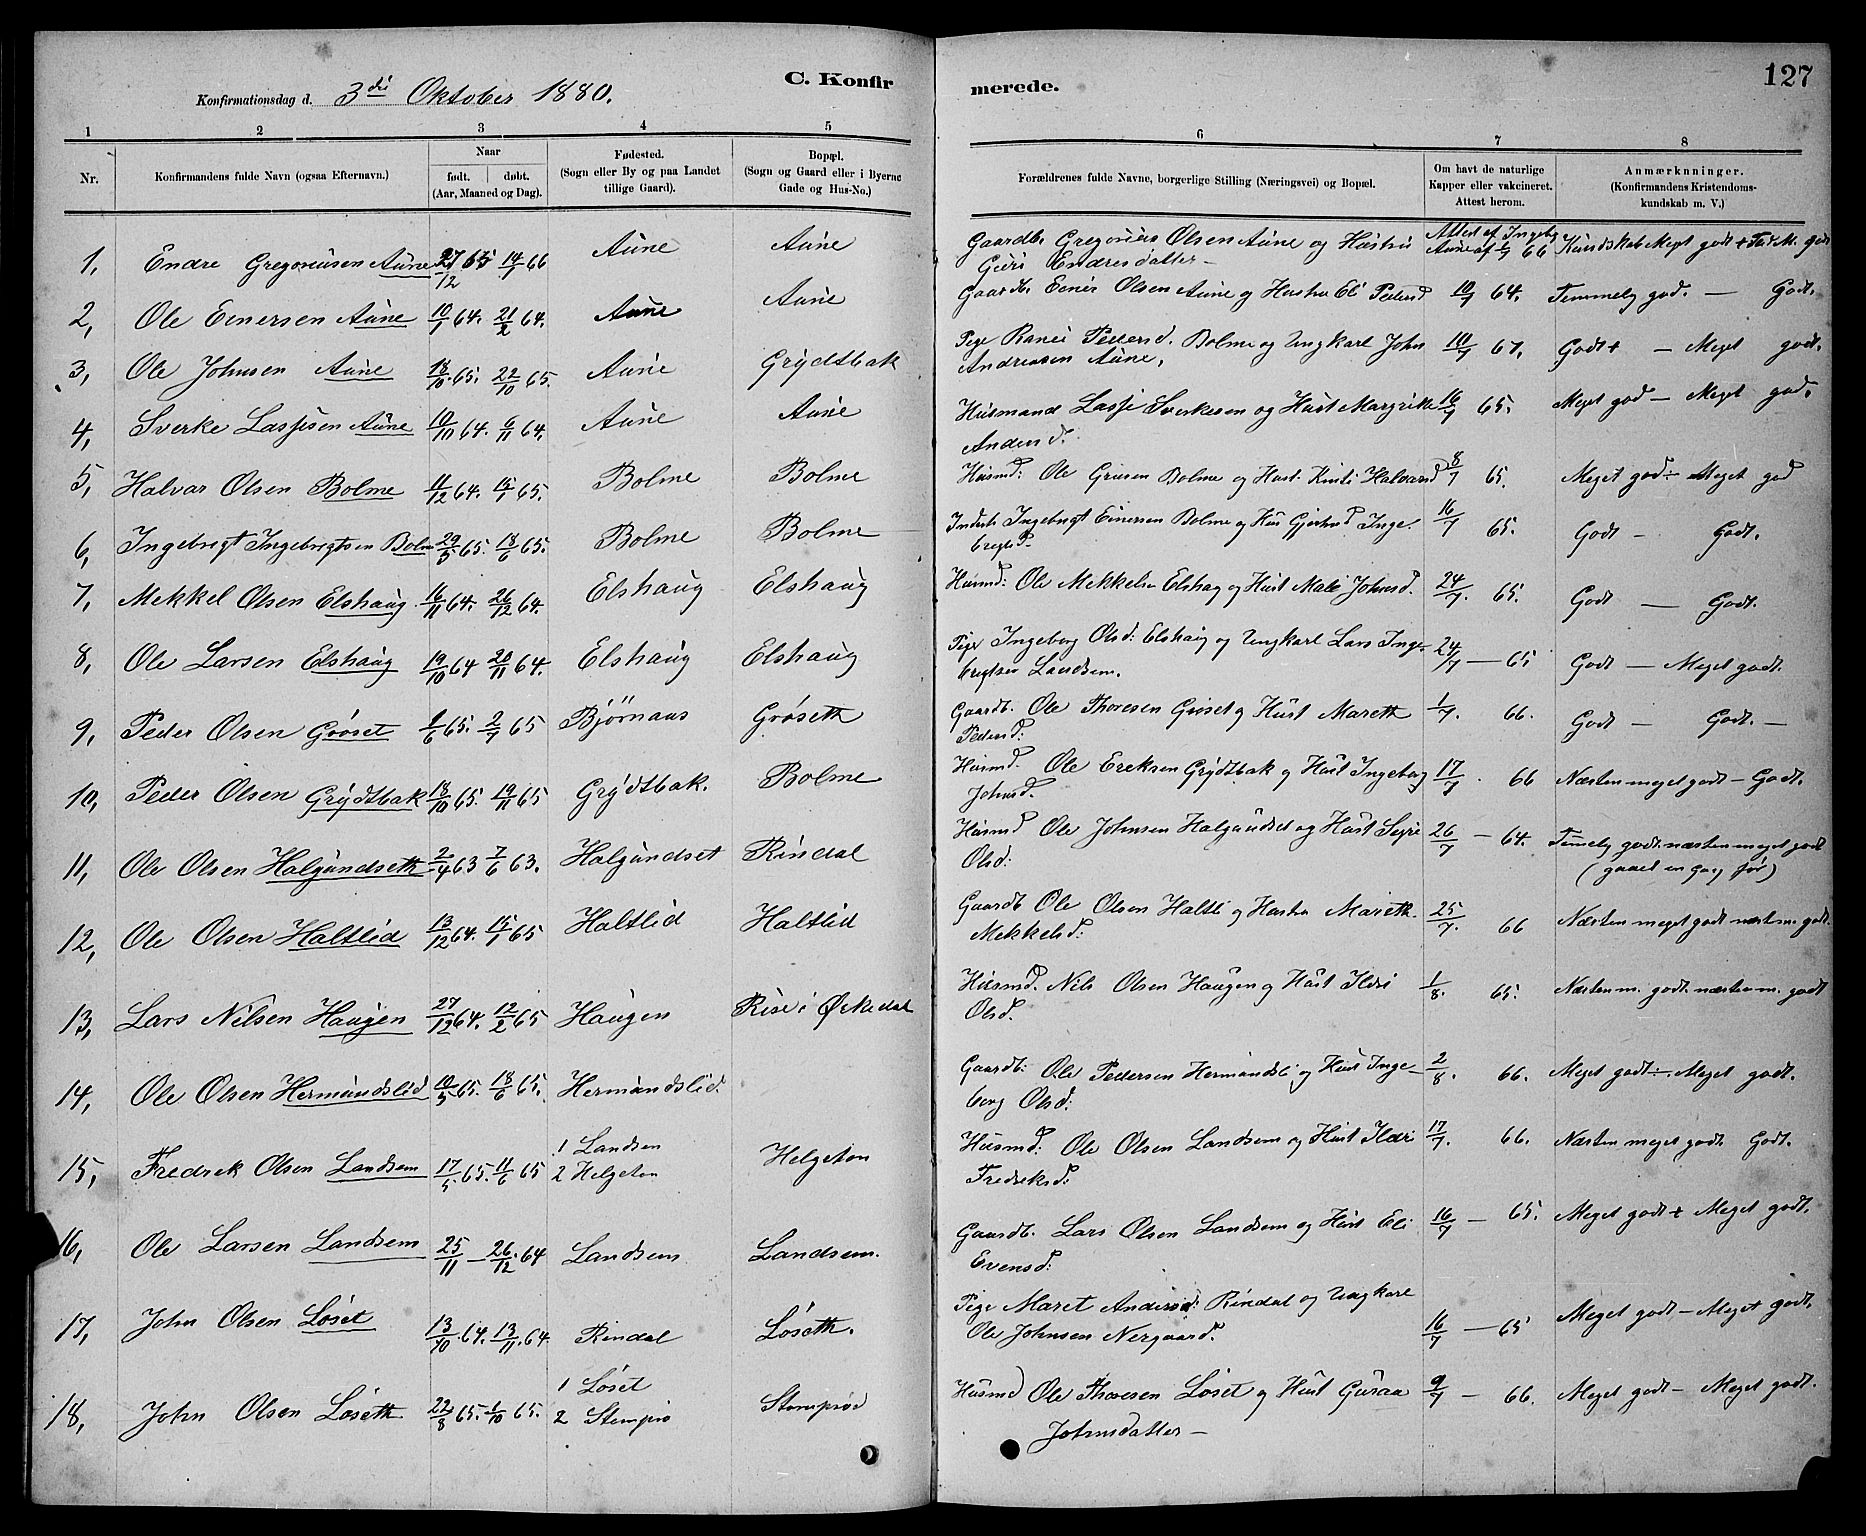 C. Konfirmerede.
127
Konfirmationsdag d. 3di Oktober 1880.
1 2 3 4 5 6 7 8
Nr.
Konfirmandens fulde Navn (ogsaa Efternavn).
Naar
født. døbt.
(Aar, Maaned og Dag).
Fødested.
(Sogn eller By og paa Landet
tillige Gaard).
Bopæl.
(Sogn og Gaard eller i Byerne
Gade og Hus-No.)
Forældrenes fulde Navne, borgerlige Stilling (Næringsvei) og Bopæl.
Om havt de naturlige
Kapper eller vakcineret.
Attest herom.
Anmærknninger.
(Konfirmandens Kristendoms-
kundskab m. V.)
1, Endre Gregoriusen Aune 27/12 65 14/1 66 Aune Aune Gaardb. Gregorius Olsen Aune og Hustru Attest af Ingebr. Kundskab Meget godt +
Guri Endresdatter – Aune af 1/7 66
2, Ole Einersen Aune 10/1 64. 21/2 64. Aune Aune Gaardb. Einer Olsen Aune og Hustru Eli Pedersd 10/9 64. Temmelig god. — Godt.
3, Ole Johnsen Aune 18/10 65. 22/10 65. Aune Grydtbak Pige Ranei Pedersd. Bolme og Ungkarl John 10/7 67. Godt + – Meget godt.
Andreasen Aune,
4, Sverke Lassesen Aune 10/10 64. 6/11 64. Aune Aune Husmand Lasse Sverkesen og Hust Margrette 16/7 65. Meget god – Meget god.
Andersd.
5, Halvar Olsen Bolme 11/12 64. 15/1 65. Bolme Bolme Husmd: Ole Olsen Bolme og Hust. Kirsti Halvarsd 8/7 65. Meget god ÷ Meget god
6, Ingebrigt Ingebrigtsen Bolme 29/5 65. 18/6 65. Bolme Bolme Inderst. Ingebrigt Einersen Bolme og Hus Gjertrud Inge- 16/7 65. Godt – Godt.
brigtsd.
7, Mekkel Olsen Elshaug 16/11 64. 26/12 64. Elshaug Elshaug Husmd: Ole Mekkelsen Elshaug og Hust Mali Johnsd. 24/7. 65. Godt — Godt.
8, Ole Larsen Elshaug 19/10 64 20/11 64. Elshaug Elshaug Pige Ingeborg Olsd: Elshaug og Ungkarl Lars Inge- 24/7 — 65 Godt — Meget godt.
brigtsen Landsem.
9, Peder Olsen Grøset 1/6 65. 2/7 65 Bjørnaas Grøseth Gaardb. Ole Thoresen Grøset og Hust Mareth 1/7. 66. Godt — Godt. —
Pedersd:
10, Peder Olsen Grydtbak 18/10 65. 19/11 65 Grydtbak. Bolme Husmd. Ole Ereksen Grydtbak og Hust Ingeborg 17/7. 66 Næsten meget godt – Godt.
Johnsd.
11, Ole Olsen Halgundseth 2/4 63 7/6 63. Halgundset Rindal Husmd Ole Johnsen Halgundset og Hust Segri 26/7 — 64. Temelig godt. næsten meget godt
Olsd: (gaaet en gang før)
12, Ole Olsen Haltlid 13/12 64. 15/1 65 Haltlid Haltlid Gaardb Ole Olsen Haltli og Hustru Mareth 25/7. 66 Næsten meget godt næsten m. godt.
Mekkelsd:
13, Lars Nilsen Haugen 27/12 64. 12/2 65 Haugen Rise i Ørkedal Husmd. Nils Olsen Haugen og Hust Ildri 1/8. 65. Næsten m. godt. næsten m. godt
Olsd.
14, Ole Olsen Hermundslid 10/5 65. 18/6 65. Hermundslid. Gaardb: Ole Pedersen Hermundsli og Hust Inge- 2/8. 66. Meget godt ÷ Meget godt.
borg Olsd:
15, Fredrek Olsen Landsem 17/5 65. 11/6 65 1 Landsem Helgeton Husmd: Ole Olsen Landsem og Hust Ildri 17/7. 66. Næsten meget godt. Godt.
2 Helgeton Fredreksd:
16, Ole Larsen Landsem 25/11 – 26/12 64 Landsem Landsem. Gaardb. Lars Olsen Landsem og Hust Eli 16/7 — 65. Meget godt + Meget godt.
Evensd:
17, John Olsen Løset 13/10 64. 13/11 64. Rindal Løseth. Pige Maret Andersd: Rindal og Ungkarl 16/7 — 65 Meget godt – Meget godt.
Ole Johnsen Nergaard.
18, John Olsen Løseth 22/8 65. 1/10 65. 1 Løset Stomprød Husmd Ole Thoresen Løset og Hust Guraa 9/7 — 66. Meget godt – Meget godt.
2 Stomprø Johnsdatter —